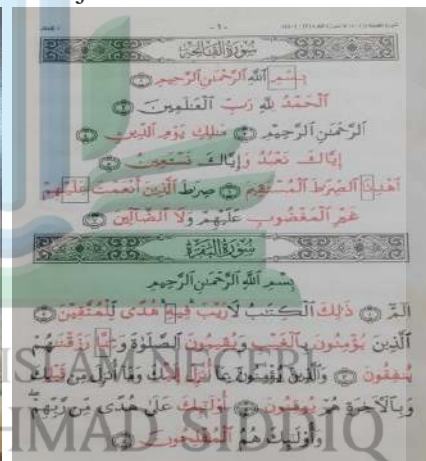 - ١ -
سُورَةُ الْفَاتِحَةِ
بِسْمِ اللَّهِ الرَّحْمَٰنِ الرَّحِيمِ ۝
الْحَمْدُ لِلَّهِ رَبِّ الْعَٰلَمِينَ ۝
الرَّحْمَٰنِ الرَّحِيمِ ۝ مَٰلِكِ يَوْمِ الدِّينِ ۝
إِيَّاكَ نَعْبُدُ وَإِيَّاكَ نَسْتَعِينُ ۝
اهْدِنَا الصِّرَٰطَ الْمُسْتَقِيمَ ۝ صِرَٰطَ الَّذِينَ أَنْعَمْتَ عَلَيْهِمْ
غَيْرِ الْمَغْضُوبِ عَلَيْهِمْ وَلَا الضَّالِّينَ ۝
سُورَةُ الْبَقَرَةِ
بِسْمِ اللَّهِ الرَّحْمَٰنِ الرَّحِيمِ
الٓمٓ ۝ ذَٰلِكَ الْكِتَٰبُ لَا رَيْبَ فِيهِ هُدًى لِّلْمُتَّقِينَ ۝
الَّذِينَ يُؤْمِنُونَ بِالْغَيْبِ وَيُقِيمُونَ الصَّلَوٰةَ وَمِمَّا رَزَقْنَٰهُمْ
يُنفِقُونَ ۝ وَالَّذِينَ يُؤْمِنُونَ بِمَا أُنزِلَ إِلَيْكَ وَمَا أُنزِلَ مِن قَبْلِكَ
وَبِالْآخِرَةِ هُمْ يُوقِنُونَ ۝ أُولَٰئِكَ عَلَىٰ هُدًى مِّن رَّبِّهِمْ
وَأُولَٰئِكَ هُمُ الْمُفْلِحُونَ ۝
ISLAM NEGERI
HMAD SIDDIQ